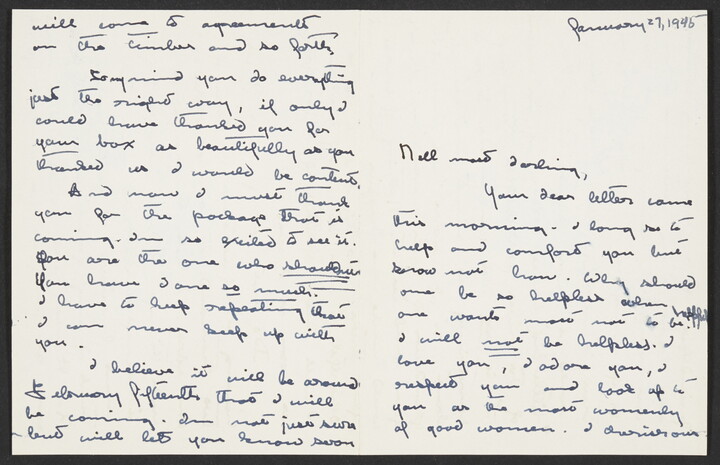 January 27, 1945
Nell most darling,
Your dear letters came
this morning. I long so to
help and comfort you but
know not how. Why should
one be so helpless when
one wants most not to be?
I will not be helpless. I
love you, I adore you, I
respect you and look up to
you as the most womanly
of good women. I
will come to agreements
on the timber and so forth.
To my mind you do everything
just the right way, if only I
could have thanked you for
your box as beautifully as you
thanked us I would be content.
And now I must thank
you for the package that is
coming. Im so excited to see it.
You are the one who shouldnt.
You have done so much.
I have to keep repeating that
I can never keep up with
you.
I believe it will be around
February fifteenth that I will
be coming. Im not just sure
but will let you know soon